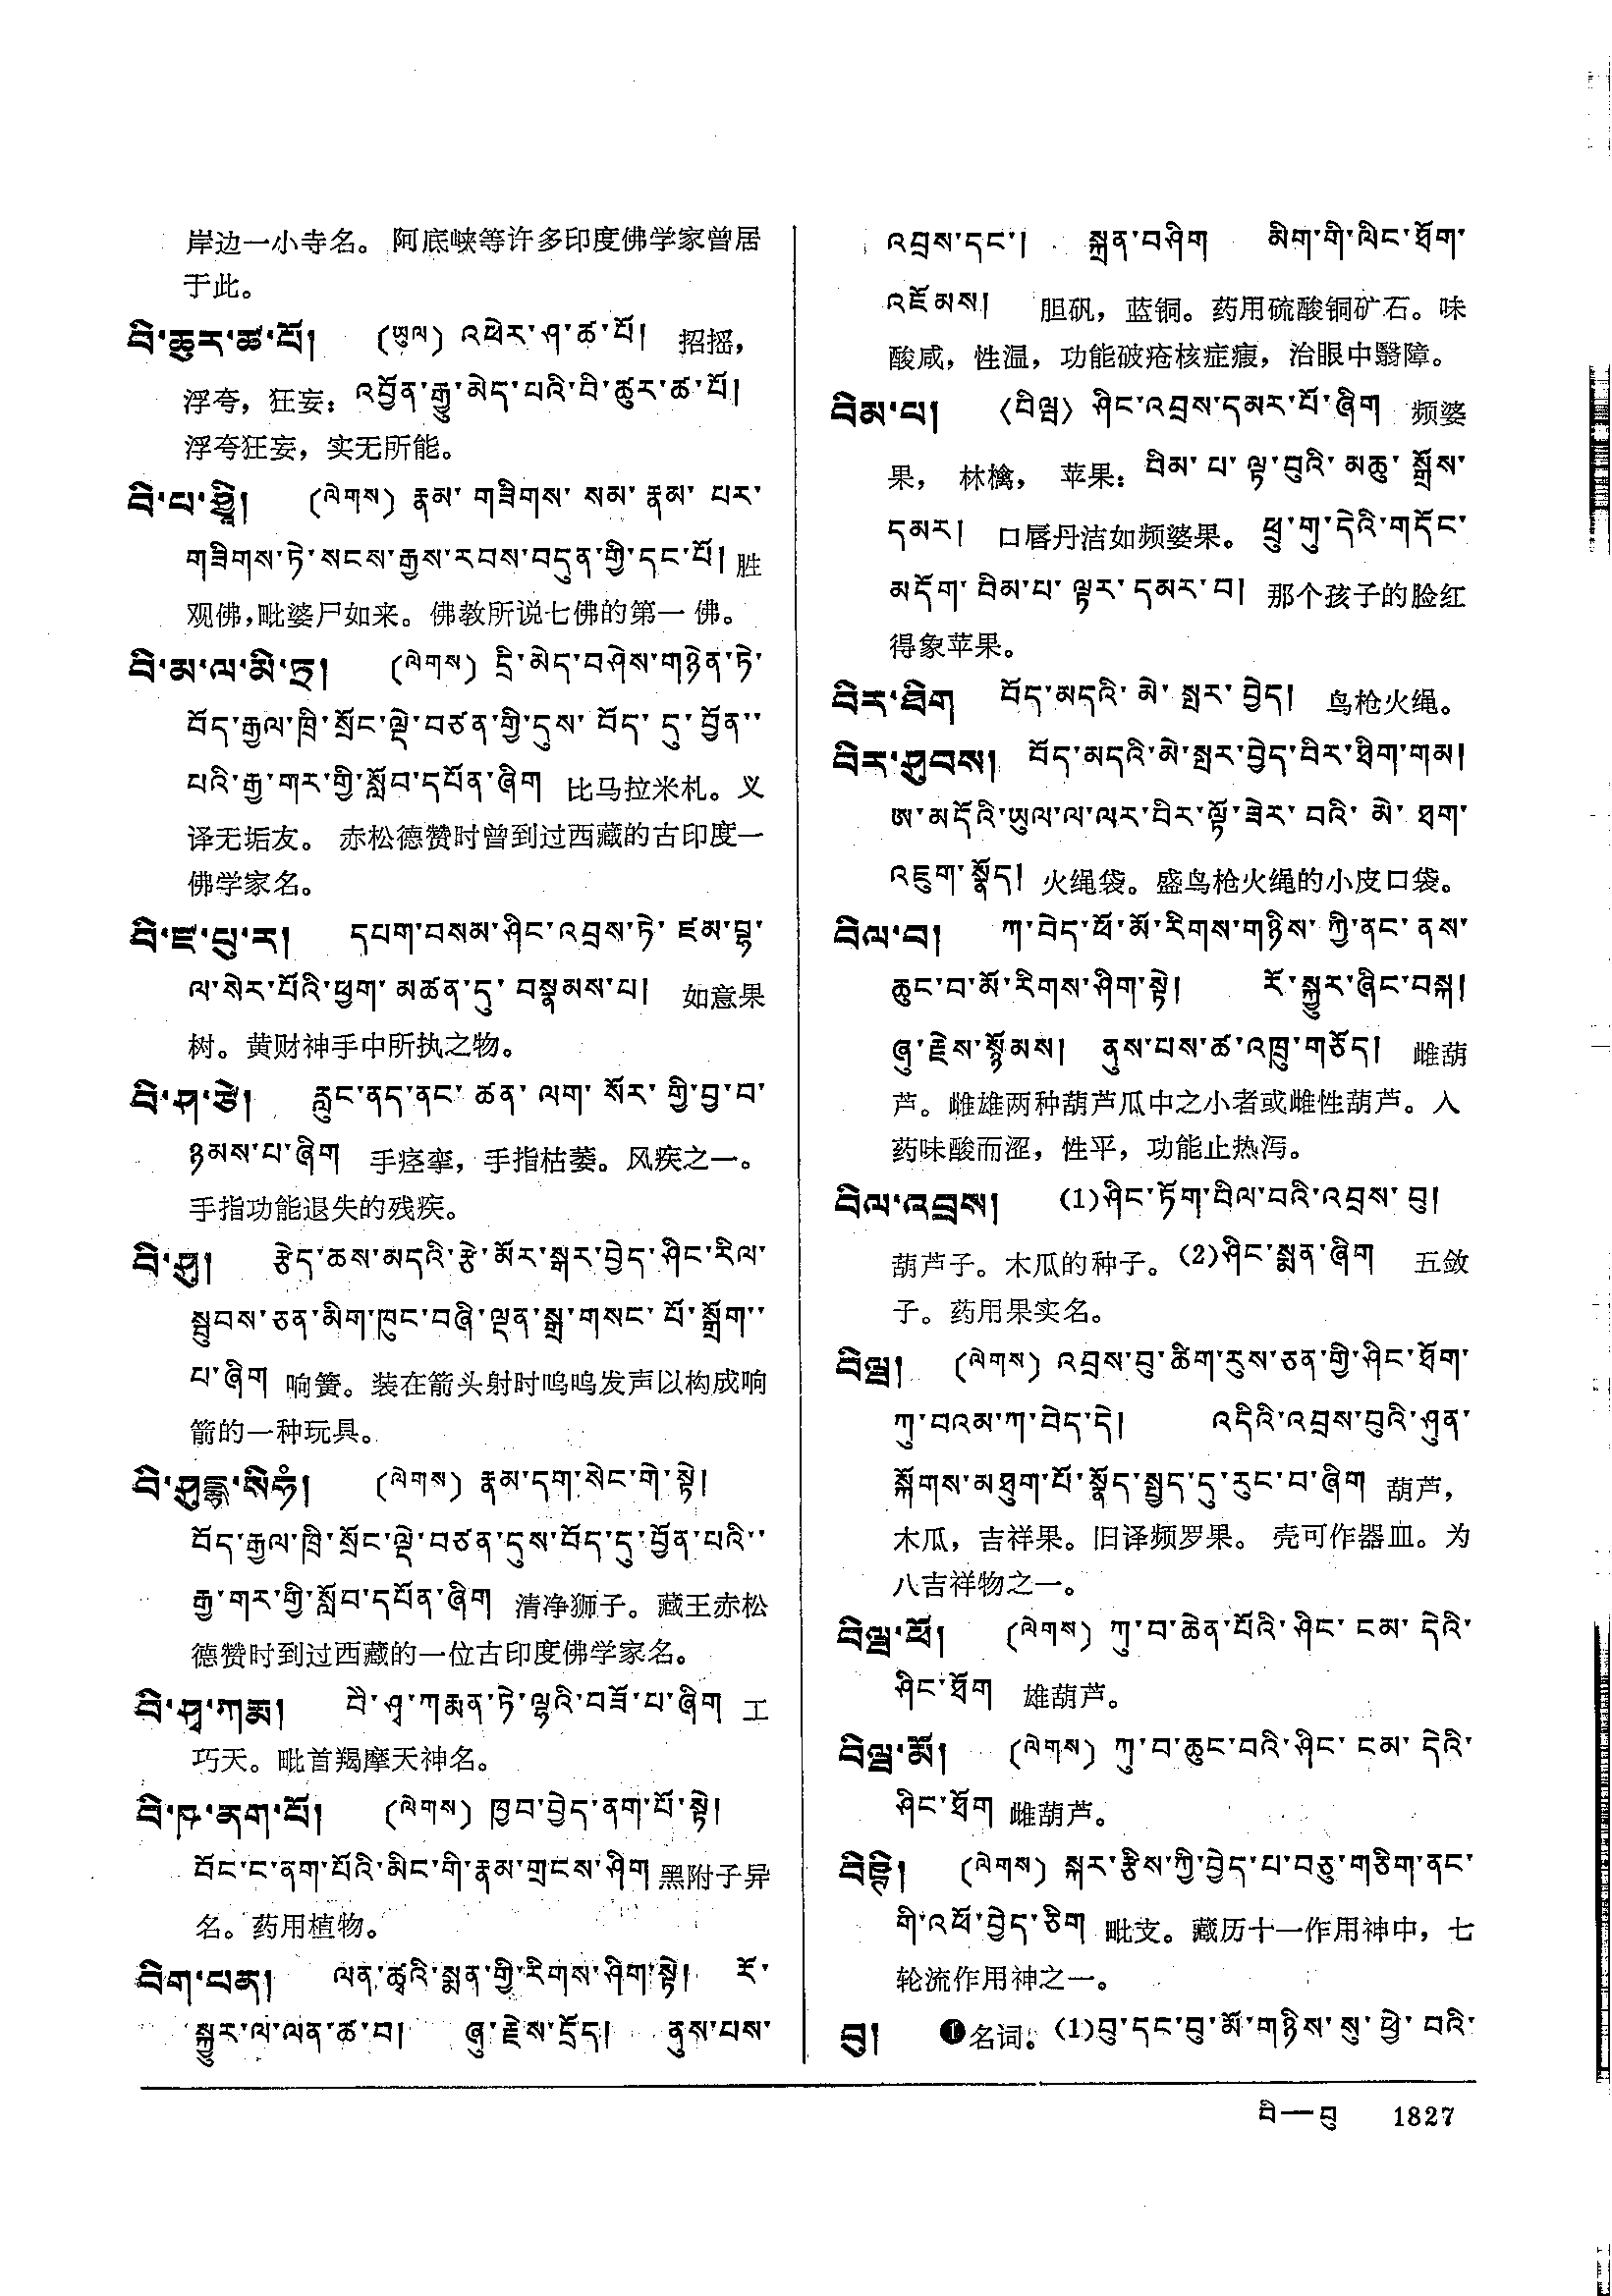 岸边一小寺名。阿底峡等许多印度佛学家曾居
于此。
བི་ཆུར་ཚ་པོ། (ཡུལ) འཕེར་ཤ་ཚ་པོ། 招摇，
浮夸，狂妄：འབྱོན་རྒྱུ་མེད་པའི་བི་ཚུར་ཚ་པོ།
浮夸狂妄，实无所能。
བི་པ་ཤྱི། (ལེགས) རྣམ་གཟིགས་སམ་རྣམ་པར་
གཟིགས་ཏེ་སངས་རྒྱས་རབས་བདུན་གྱི་དང་པོ། 胜
观佛，毗婆尸如来。佛教所说七佛的第一佛。
བི་མ་ལ་མི་ཏྲ། (ལེགས) དྲི་མེད་བཤེས་གཉེན་ཏེ་
བོད་རྒྱལ་ཁྲི་སྲོང་ལྡེ་བཙན་གྱི་དུས་བོད་དུ་བྱོན་་
པའི་རྒྱ་གར་གྱི་སློབ་དཔོན་ཞིག 比马拉米札。义
译无垢友。赤松德赞时曾到过西藏的古印度一
佛学家名。
བི་ཇ་པུ་ར། དཔག་བསམ་ཤིང་འབྲས་ཏེ་ཛམ་བྷ་
ལ་སེར་པོའི་ཕྱག་མཚན་དུ་བསྣམས་པ། 如意果
树。黄财神手中所执之物。
བི་ཤ་ཙེ། རླུང་ནད་ནང་ཚན་ལག་སོར་གྱི་བྱ་བ་
ཉམས་པ་ཞིག 手痉挛，手指枯萎。风疾之一。
手指功能退失的残疾。
བི་ཤུ། རྩེད་ཆས་མདའི་རྩེ་མོར་སྒར་བྱེད་ཤིང་རིལ་
སྦུབས་ཅན་མིག་ཁུང་བཞི་ལྡན་སྒྲ་གསང་པོ་སྒྲོག་་
པ་ཞིག 响簧。装在箭头射时呜呜发声以构成响
箭的一种玩具。
བི་ཤུདྡྷ་སིཧཾ། (ལེགས) རྣམ་དག་སེང་གེ་སྟེ།
བོད་རྒྱལ་ཁྲི་སྲོང་ལྡེ་བཙན་དུས་བོད་དུ་བྱོན་པའི་་
རྒྱ་གར་གྱི་སློབ་དཔོན་ཞིག 清净狮子。藏王赤松
德赞时到过西藏的一位古印度佛学家名。
བི་ཤྭ་ཀརྨ། བེ་ཤྭ་ཀརྨན་ཏེ་ལྷའི་བཟོ་པ་ཞིག 工
巧天。毗首羯摩天神名。
བི་ཥ་ནག་པོ། (ལེགས) ཁྱབ་བྱེད་ནག་པོ་སྟེ།
བོང་ང་ནག་པོའི་མིང་གི་རྣམ་གྲངས་ཤིག 黑附子异
名。药用植物。
བིག་པན། ལན་ཚྭའི་སྨན་གྱི་རིགས་ཤིག་སྟེ། རོ་
སྐྱུར་ལ་ལན་ཚ་བ། ཞུ་རྗེས་དྲོད། ནུས་པས་
འབྲས་དང་། སྐྲན་བཤིག མིག་གི་ལིང་ཐོག་
འཇོམས། 胆矾，蓝铜。药用硫酸铜矿石。味
酸咸，性温，功能破疮核症瘕，治眼中翳障。
བིམ་པ། (བིལྦ) ཤིང་འབྲས་དམར་པོ་ཞིག 频婆
果，林檎，苹果：བིམ་པ་ལྟ་བུའི་མཆུ་སྒྲོས་
དམར། 口唇丹洁如频婆果。ཕྲུ་གུ་དེའི་གདོང་
མདོག་བིམ་པ་ལྟར་དམར་བ། 那个孩子的脸红
得象苹果。
བིར་ཐིག བོད་མདའི་མེ་སྤར་བྱེད། 鸟枪火绳。
བིར་ཤུབས། བོད་མདའི་མེ་སྤར་བྱེད་བིར་ཐིག་གམ།
ཨ་མདོའི་ཡུལ་ལ་ལར་བིར་ལྟོ་ཟེར་བའི་མེ་ཐག་
འཇུག་སྣོད། 火绳袋。盛鸟枪火绳的小皮口袋。
བིལ་བ། ཀ་བེད་ཕོ་མོ་རིགས་གཉིས་ཀྱི་ནང་ནས་
ཆུང་བ་མོ་རིགས་ཤིག་སྟེ། རོ་སྐྱུར་ཞིང་བསྐ།
ཞུ་རྗེས་སྙོམས། ནུས་པས་ཚ་འཁྲུ་གཅོད། 雌葫
芦。雌雄两种葫芦瓜中之小者或雌性葫芦。入
药味酸而涩，性平，功能止热泻。
བིལ་འབྲས། (1)ཤིང་ཏོག་བིལ་བའི་འབྲས་བུ།
葫芦子。木瓜的种子。(2)ཤིང་སྨན་ཞིག 五敛
子。药用果实名。
བིལྦ། (ལེགས) འབྲས་བུ་ཚིག་རུས་ཅན་གྱི་ཤིང་ཐོག་
ཀུ་བའམ་ཀ་བེད་དེ། འདིའི་འབྲས་བུའི་ཤུན་
སྐོགས་མཐུག་པོ་སྣོད་སྤྱད་དུ་རུང་བ་ཞིག 葫芦，
木瓜，吉祥果。旧译频罗果。壳可作器皿。为
八吉祥物之一。
བིལྦ་ཕོ། (ལེགས) ཀུ་བ་ཆེན་པོའི་ཤིང་ངམ་དེའི་
ཤིང་ཐོག 雄葫芦。
བིལྦ་མོ། (ལེགས) ཀུ་བ་ཆུང་བའི་ཤིང་ངམ་དེའི་
ཤིང་ཐོག 雌葫芦。
བིཥྚི། (ལེགས) སྐར་རྩིས་ཀྱི་བྱེད་པ་བཅུ་གཅིག་ནང་
གི་འཕོ་བྱེད་ཅིག 毗支。藏历十一作用神中，七
轮流作用神之一。
བུ། ❶名词：(1)བུ་དང་བུ་མོ་གཉིས་སུ་ཕྱེ་བའི་
བི—བུ 1827